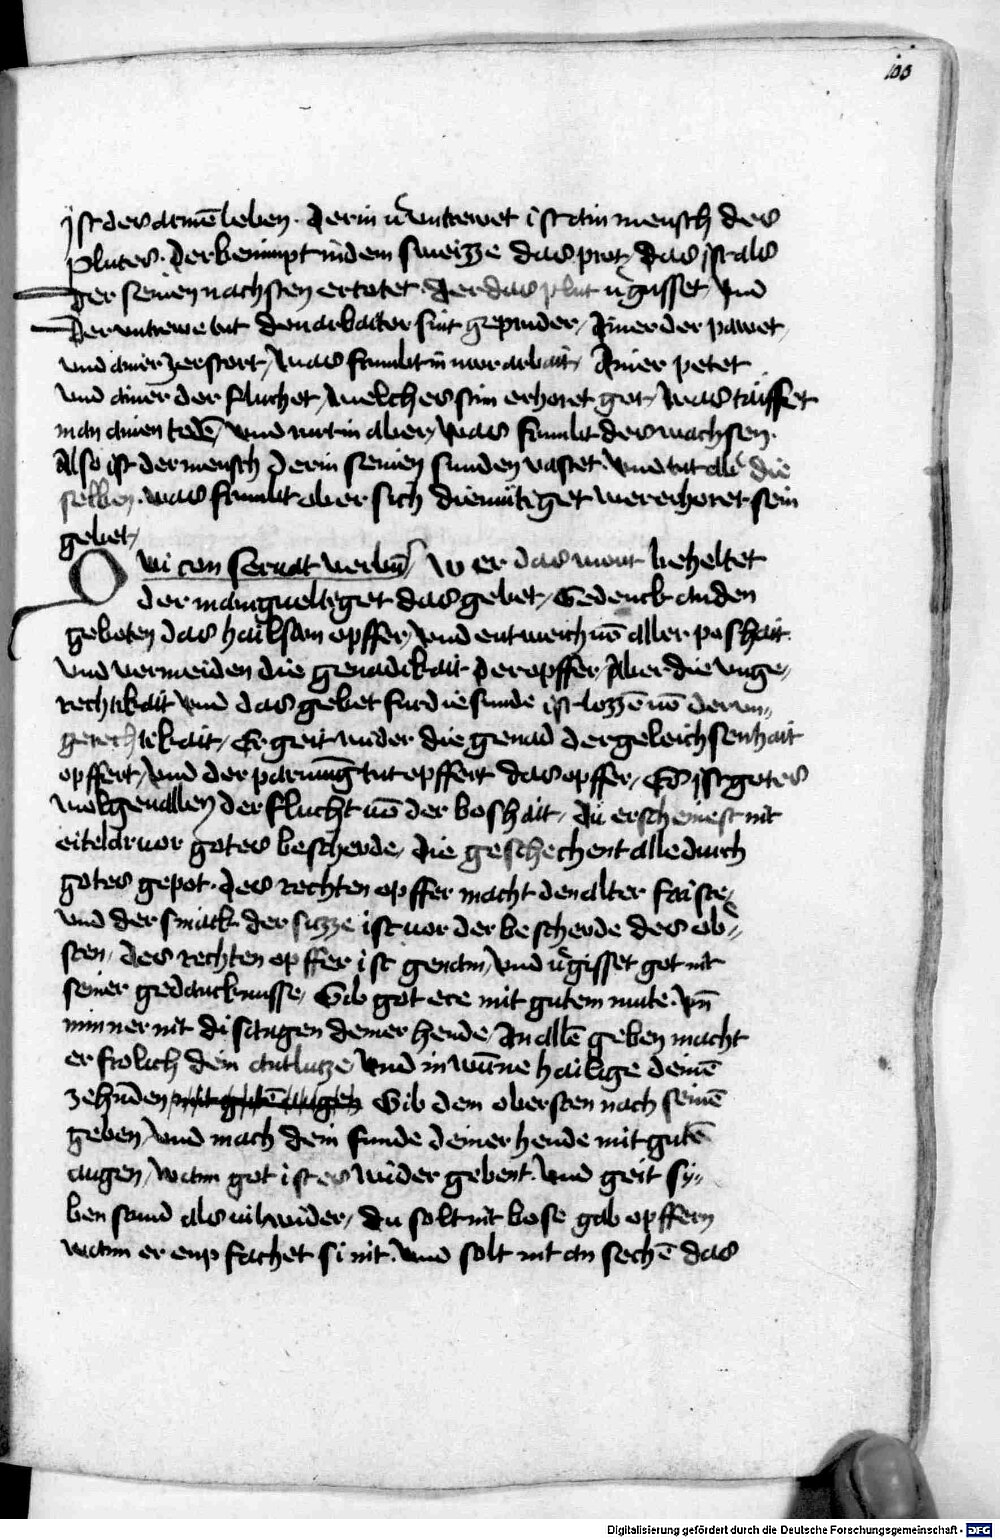 100
ist des armē leben. Der in v̓untrewet ist ain mensch des
plutes. Der benimpt in dem sweizze das prot, das ist als
der seinen nachsten ertotet. Der das plut v̓gisset, vnd
der vntrewe tut den arbaiter sint geprüder, Ainer der pawet,
und ainer zerstort, was frumbt in nuor arbait, Ainer petet
vnd ainer der fluchet, welches stim erhoret got, was tauffet
man ainen toden, vnd rurt in aber, was frumbt des wachsen.
Also ist der mensch der in seinen sunden vastet vnd tut ab̓ die
selben. was frumbt aber sich diemütiget wer erhoret sein
gebet,
Qvi conseruat verbū, W er das wort beheltet
der manigueltiget das gebet, Gedenck an den
geboten das hailsam opffer, vnd entweich vō aller poshait.
vnd vermeiden die genadikait der opffer, Aber die unge,
rechtikait vnd das gebet fur die sunde ist lozzē vō der un,,
gerechtikait, Er geit wider die genad der geleichsenhait
opffert, vnd der parmūg tut opffert das opffer, Es ist gotes
wolgeuallen der flucht vō der boshait, Du erscheinest nit
eitelar vor gotes bescheude, Die geschechent alle durch
gotes gepot. Des rechten opffer macht den alter faiste,
vnd der smack der suzze ist vor der bescheude des ob̓,,
sten, des rechten opffer ist genam, vnd v̓gisset got nit
seiner gedancknusse, Gib got ere mit gutem mute. vn̄
minner nit di sangen deiner hende, In allē geben macht
er frolich dein antlutze, vnd in wūne hailige deinē
zehn̄den Gib dem obersten nach seinē
geben, vnd mach dein funde deiner hende mit gutē
augen, wann got ist es wider gebent. vnd geit sy,,
ben stund als vil wider, du solt nit bose gab opffern
wann er enpfachet si nit. vnd solt nit an sechē das
Digitalisierung gefördert durch die Deutsche Forschungsgemeinschaft - DFG